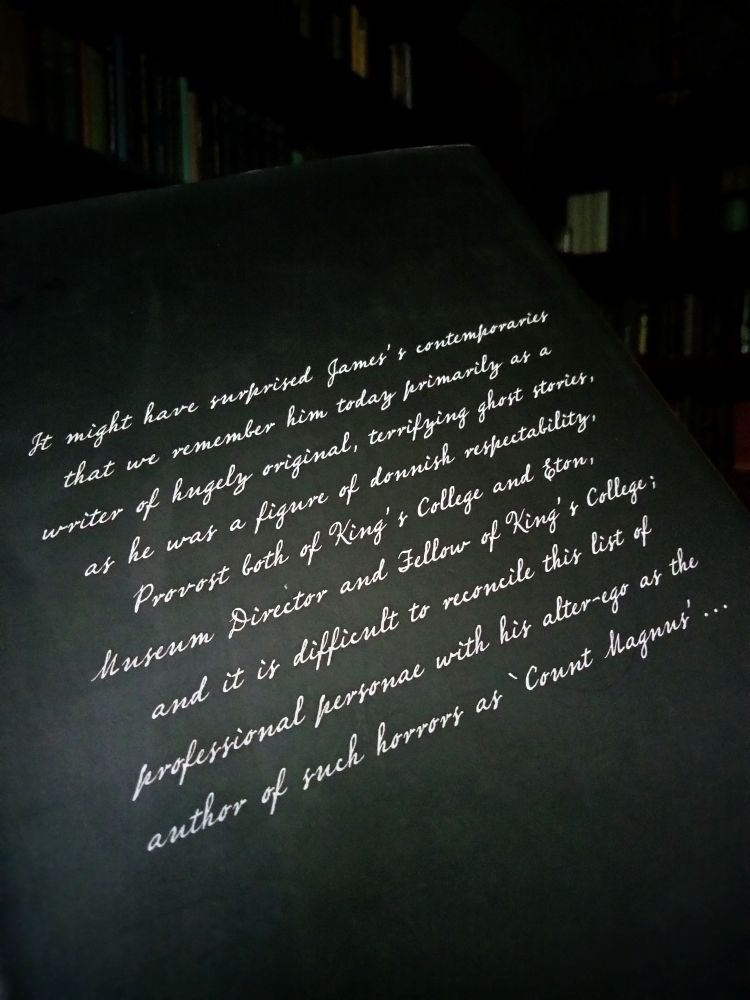 It might have surprised James's contemporaries
that we remember him today primarily as a
writer of hugely original, terrifying ghost stories,
as he was a figure of donnish respectability,
Provost both of King's College and Eton,
Museum Director and Fellow of King's College;
and it is difficult to reconcile this list of
professional personae with his alter-ego as the
author of such horrors as `Count Magnus' ...